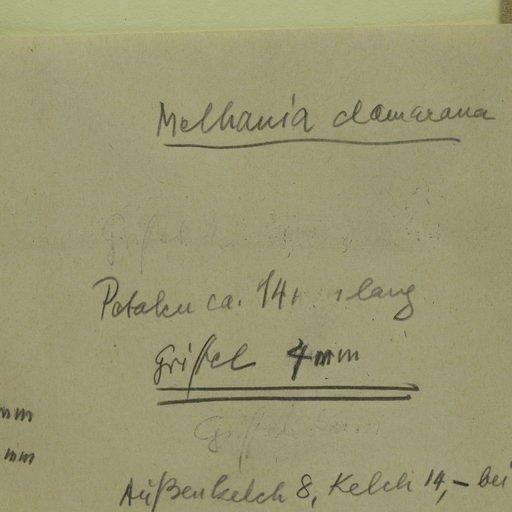 Melhania damarana
Petalen ca. 14 lang
Griffel 4mm
mm
mm
Griffel
Außenkelch 8, Kelch 14, – bei